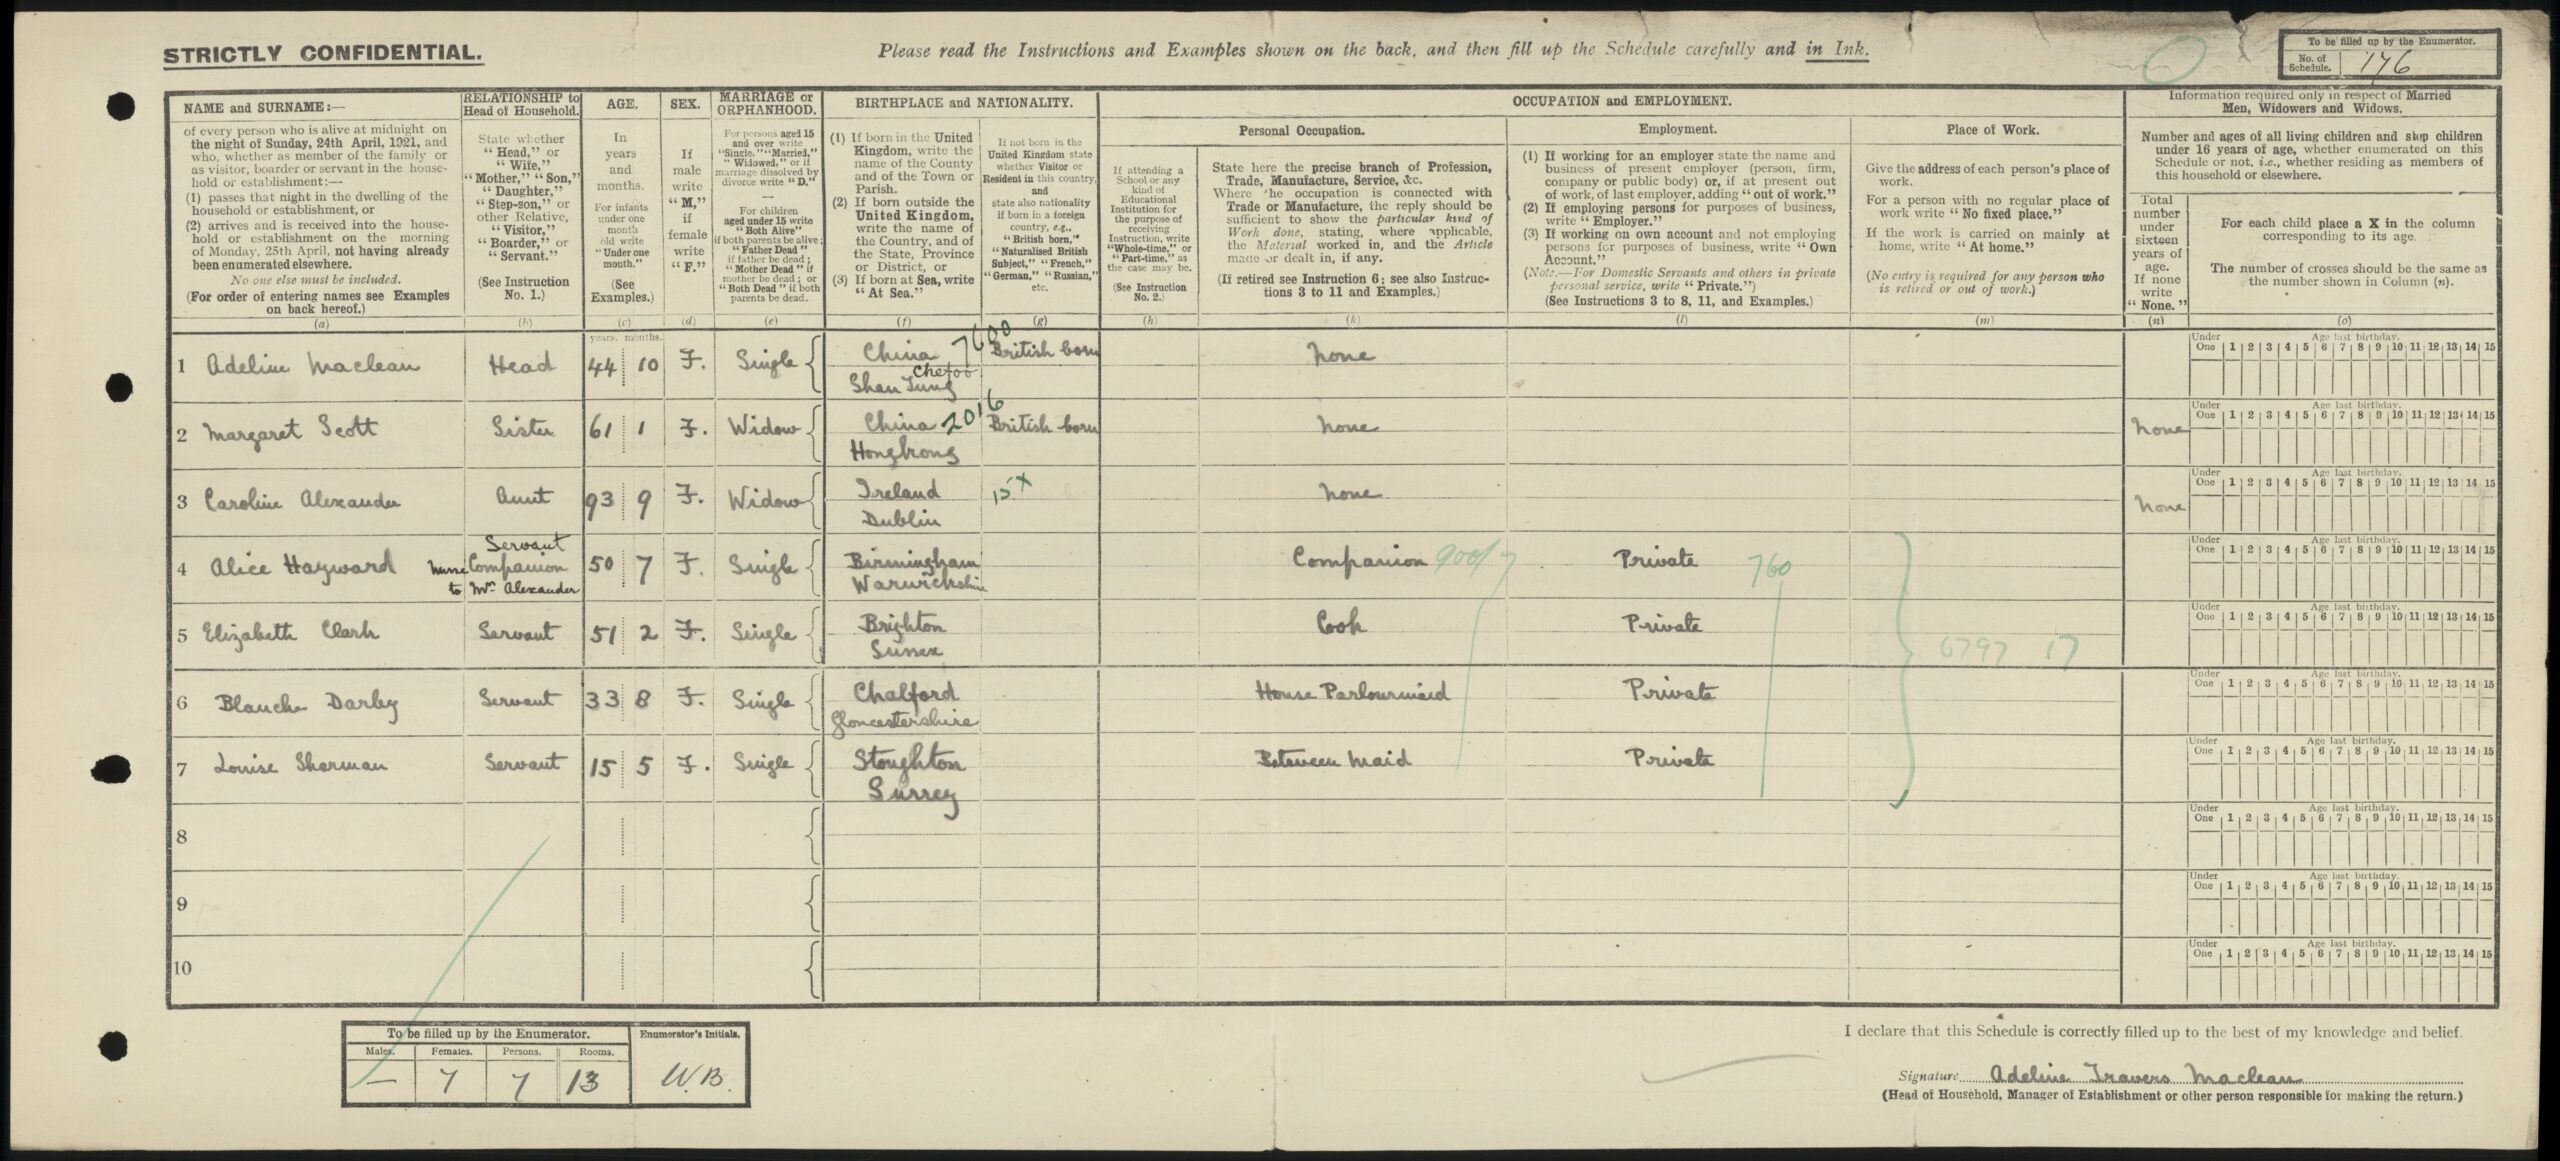 STRICTLY CONFIDENTIAL.
Please read the Instructions and Examples shown on the back, and then fill up the Schedule carefully and in Ink.
To be filled up by the Enumerator.
No. of Schedule. 176
NAME and SURNAME:—
of every person who is alive at midnight on
the night of Sunday, 24th April, 1921, and
who, whether as member of the family or
as visitor, boarder or servant in the house-
hold or establishment:—
(1) passes that night in the dwelling of the
household or establishment, or
(2) arrives and is received into the house-
hold or establishment on the morning
of Monday, 25th April, not having already
been enumerated elsewhere.
No one else must be included.
(For order of entering names see Examples
on back hereof.)
(a)
RELATIONSHIP to
Head of Household.
State whether
"Head," or
"Wife,"
"Mother," "Son,"
"Daughter,"
"Step-son," or
other Relative,
"Visitor,"
"Boarder," or
"Servant."
(See Instruction
No. 1.)
(b)
AGE.
In
years
and
months.
For infants
under one
month
old write
"Under one
month."
(See
Examples.)
(c)
SEX.
If
male
write
"M,"
if
female
write
"F."
(d)
MARRIAGE or
ORPHANHOOD.
For persons aged 15
and over write
"Single," "Married,"
"Widowed," or if
marriage dissolved by
divorce write "D."
—
For children
aged under 15 write
"Both Alive"
if both parents be alive;
"Father Dead"
if father be dead;
"Mother Dead" if
mother be dead; or
"Both Dead" if both
parents be dead.
(e)
BIRTHPLACE and NATIONALITY.
(1) If born in the United
Kingdom, write the
name of the County
and of the Town or
Parish.
(2) If born outside the
United Kingdom,
write the name of
the Country, and of
the State, Province
or District, or
(3) If born at Sea, write
"At Sea."
(f)
If not born in the
United Kingdom state
whether Visitor or
Resident in this country,
and
state also nationality
if born in a foreign
country, e.g.,
"British born,"
"Naturalised British
Subject," "French,"
"German," "Russian,"
etc.
(g)
OCCUPATION and EMPLOYMENT.
Personal Occupation.
If attending a
School or any
kind of
Educational
Institution for
the purpose of
receiving
Instruction, write
"Whole-time," or
"Part-time," as
the case may be.
(See Instruction
No. 2.)
(h)
State here the precise branch of Profession,
Trade, Manufacture, Service, &c.
Where the occupation is connected with
Trade or Manufacture, the reply should be
sufficient to show the particular kind of
Work done, stating, where applicable,
the Material worked in, and the Article
made or dealt in, if any.
(If retired see Instruction 6; see also Instruc-
tions 3 to 11 and Examples.)
(k)
Employment.
(1) If working for an employer state the name and
business of present employer (person, firm,
company or public body) or, if at present out
of work, of last employer, adding "out of work."
(2) If employing persons for purposes of business,
write "Employer."
(3) If working on own account and not employing
persons for purposes of business, write "Own
Account."
(Note.—For Domestic Servants and others in private
personal service, write "Private.")
(See Instructions 3 to 8, 11, and Examples.)
(l)
Place of Work.
Give the address of each person's place of
work.
For a person with no regular place of
work write "No fixed place."
If the work is carried on mainly at
home, write "At home."
(No entry is required for any person who
is retired or out of work.)
(m)
Information required only in respect of Married
Men, Widowers and Widows.
Number and ages of all living children and step children
under 16 years of age, whether enumerated on this
Schedule or not, i.e., whether residing as members of
this household or elsewhere.
Total
number
under
sixteen
years of
age.
If none
write
"None."
(n)
For each child place a X in the column
corresponding to its age.
The number of crosses should be the same as
the number shown in Column (n).
(o)
years. months.
Under One Age last birthday. 1 2 3 4 5 6 7 8 9 10 11 12 13 14 15
1 Adeline Maclean Head 44 10 F. Single China 7600 British born None
Chefoo
Shan Tung
Under One Age last birthday. 1 2 3 4 5 6 7 8 9 10 11 12 13 14 15
2 Margaret Scott Sister 61 1 F. Widow China 2016 British born None None
Hongkong
Under One Age last birthday. 1 2 3 4 5 6 7 8 9 10 11 12 13 14 15
3 Caroline Alexander Aunt 93 9 F. Widow Ireland 15X None None
Dublin
Under One Age last birthday. 1 2 3 4 5 6 7 8 9 10 11 12 13 14 15
Servant
4 Alice Hayward Nurse Companion 50 7 F. Single Birmingham Companion 900/7 Private 760
to Mrs Alexander Warwickshire
Under One Age last birthday. 1 2 3 4 5 6 7 8 9 10 11 12 13 14 15
5 Elizabeth Clark Servant 51 2 F. Single Brighton Cook Private
Sussex 6797 17
Under One Age last birthday. 1 2 3 4 5 6 7 8 9 10 11 12 13 14 15
6 Blanche Darby Servant 33 8 F. Single Chalford House Parlourmaid Private
Gloucestershire
Under One Age last birthday. 1 2 3 4 5 6 7 8 9 10 11 12 13 14 15
7 Louise Sharman Servant 15 5 F. Single Stoughton Between Maid Private
Surrey
Under One Age last birthday. 1 2 3 4 5 6 7 8 9 10 11 12 13 14 15
8
Under One Age last birthday. 1 2 3 4 5 6 7 8 9 10 11 12 13 14 15
9
Under One Age last birthday. 1 2 3 4 5 6 7 8 9 10 11 12 13 14 15
10
To be filled up by the Enumerator.
Males. Females. Persons. Rooms.
— 7 7 13
Enumerator's Initials.
W.B.
I declare that this Schedule is correctly filled up to the best of my knowledge and belief.
Signature Adeline Travers Maclean
(Head of Household, Manager of Establishment or other person responsible for making the return.)